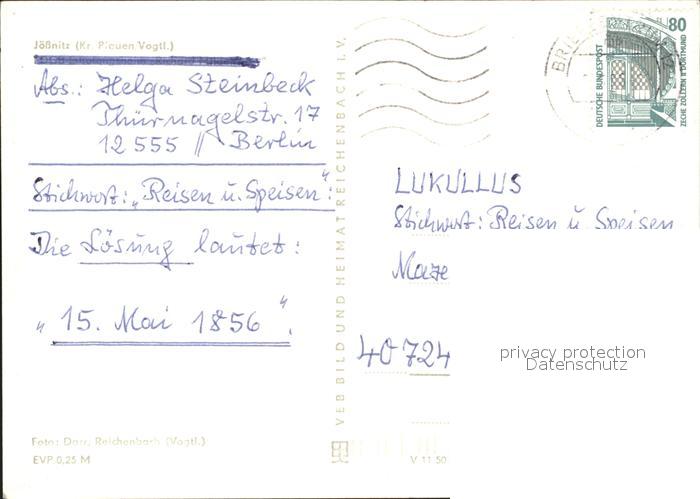 Jößnitz (Kr. Plauen Vogtl.)
Abs.: Helga Steinbeck
Thürnagelstr. 17
12 555 // Berlin
Stichwort: „Reisen u. Speisen":
Die Lösung lautet:
„15. Mai 1856".
Foto: Darr, Reichenbach (Vogtl.)
EVP 0,25 M
VEB BILD UND HEIMAT REICHENBACH I. V.
V 11 50
80
DEUTSCHE BUNDESPOST
ZECHE ZOLLERN II DORTMUND
LUKULLUS
Stichwort: Reisen u. Speisen
40724
privacy protection
Datenschutz